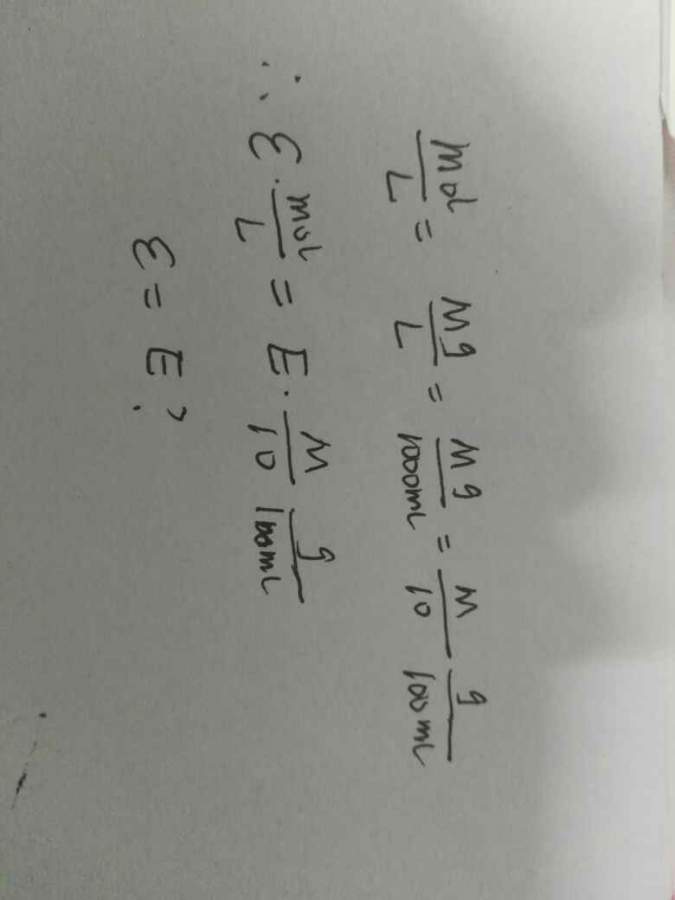 mol/L = Mg/L = Mg/1000mL = M/10 g/100mL
∴ ε · mol/L = E · M/10 g/100mL
ε = E ?